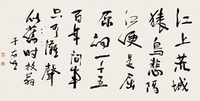 江上荒城
猿鸟悲隔
江便是屈
原祠一千五
百年间事
只有滩声
似旧时放翁
于右任